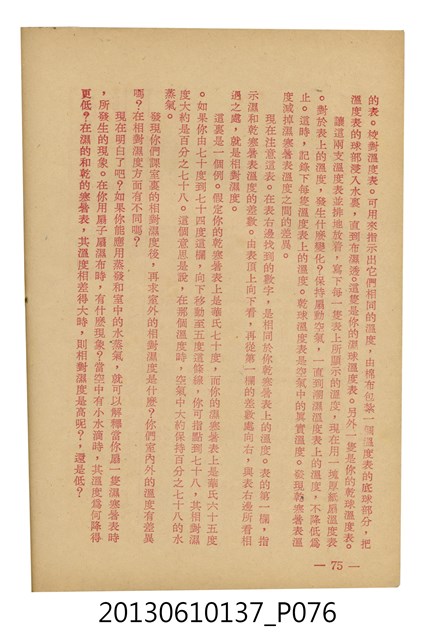 的表。校對溫度表。可用來指示出它們相同的溫度，由棉布包紮一個溫度表的底球部分，把
溫度表的球部浸入水裏，直到布濕透。這便是你的濕球溫度表。另外一隻是你的乾球溫度表。
讓這兩支溫度表並排地放着，寫下每一隻表上所顯示的溫度，現在用一塊厚紙扇溫度表
。對於表上的溫度，發生什麼變化？保持扇動空氣，一直到濕濕溫度表上的溫度，不降低為
止。這時，記錄下每隻溫度表上的溫度。乾球溫度表是空氣中的真實溫度。發現乾寒暑表溫
度減掉濕寒暑表溫度之間的差異。
現在注意這表。在表右邊找到的數字，是相同於你乾寒暑表上的溫度。表的第一欄，指
示濕和乾寒暑表溫度的差數。由表頂上向下看，再從第一欄的差數處向右，與表右邊所看相
遇之處，就是相對濕度。
這裏是一個例。假定你的乾寒暑表上是華氏七十度，而你的濕寒暑表上是華氏六十五度
。如果你由七十度到七十四度這欄，向下移動至五度這條線，你可指點到七十八，其相對濕
度大約是百分之七十八。這個意思是說，在那個溫度時，空氣中大約保持百分之七十八的水
蒸氣。
發現你們課室裏的相對濕度後，再求室外的相對濕度是什麼？你們室內外的溫度有差異
嗎？在相對濕度方面有不同嗎？
現在明白了吧？如果你能應用蒸發和室中的水蒸氣，就可以解釋當你扇一隻濕寒暑表時
，所發生的現象。在你用扇子扇濕布時，有什麼現象？當空中有小水滴時，其溫度為何降得
更低？在濕的和乾的寒暑表，其溫度相差得大時，則相對濕度是高呢？，還是低？
— 75 —
20130610137_P076